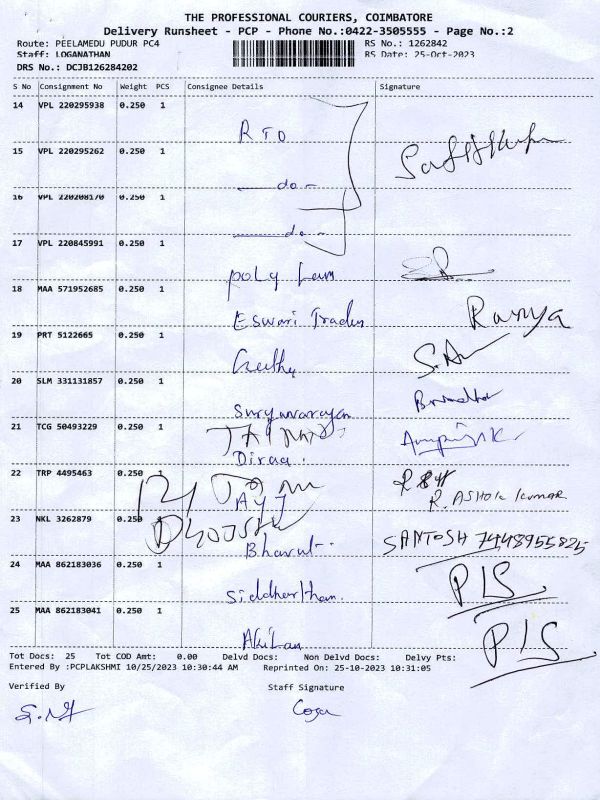 THE PROFESSIONAL COURIERS, COIMBATORE
Delivery Runsheet - PCP - Phone No.:0422-3505555 - Page No.:2
Route: PEELAMEDU PUDUR PC4 RS No.: 1262842
Staff: LOGANATHAN RS Date: 25-Oct-2023
DRS No.: DCJB126284202
S No Consignment No Weight PCS Consignee Details Signature
14 VPL 220295938 0.250 1 RTO
15 VPL 220295262 0.250 1 —do—
16 VPL 220208170 0.250 1 —do—
17 VPL 220845991 0.250 1 poly Lam
18 MAA 571952685 0.250 1 Eswari Trades Ramya
19 PRT 5122665 0.250 1 Geetha
20 SLM 331131857 0.250 1 Suryanarayan
21 TCG 50493229 0.250 1 Diraa.
22 TRP 4495463 0.250 1 AYJ R. ASHOK kumar
23 NKL 3262879 0.250 1 Bharat SANTOSH 7448955825
24 MAA 862183036 0.250 1 Siddharthan. PLS
25 MAA 862183041 0.250 1 Akilan PLS
Tot Docs: 25 Tot COD Amt: 0.00 Delvd Docs: Non Delvd Docs: Delvy Pts:
Entered By :PCPLAKSHMI 10/25/2023 10:30:44 AM Reprinted On : 25-10-2023 10:31:05
Verified By Staff Signature